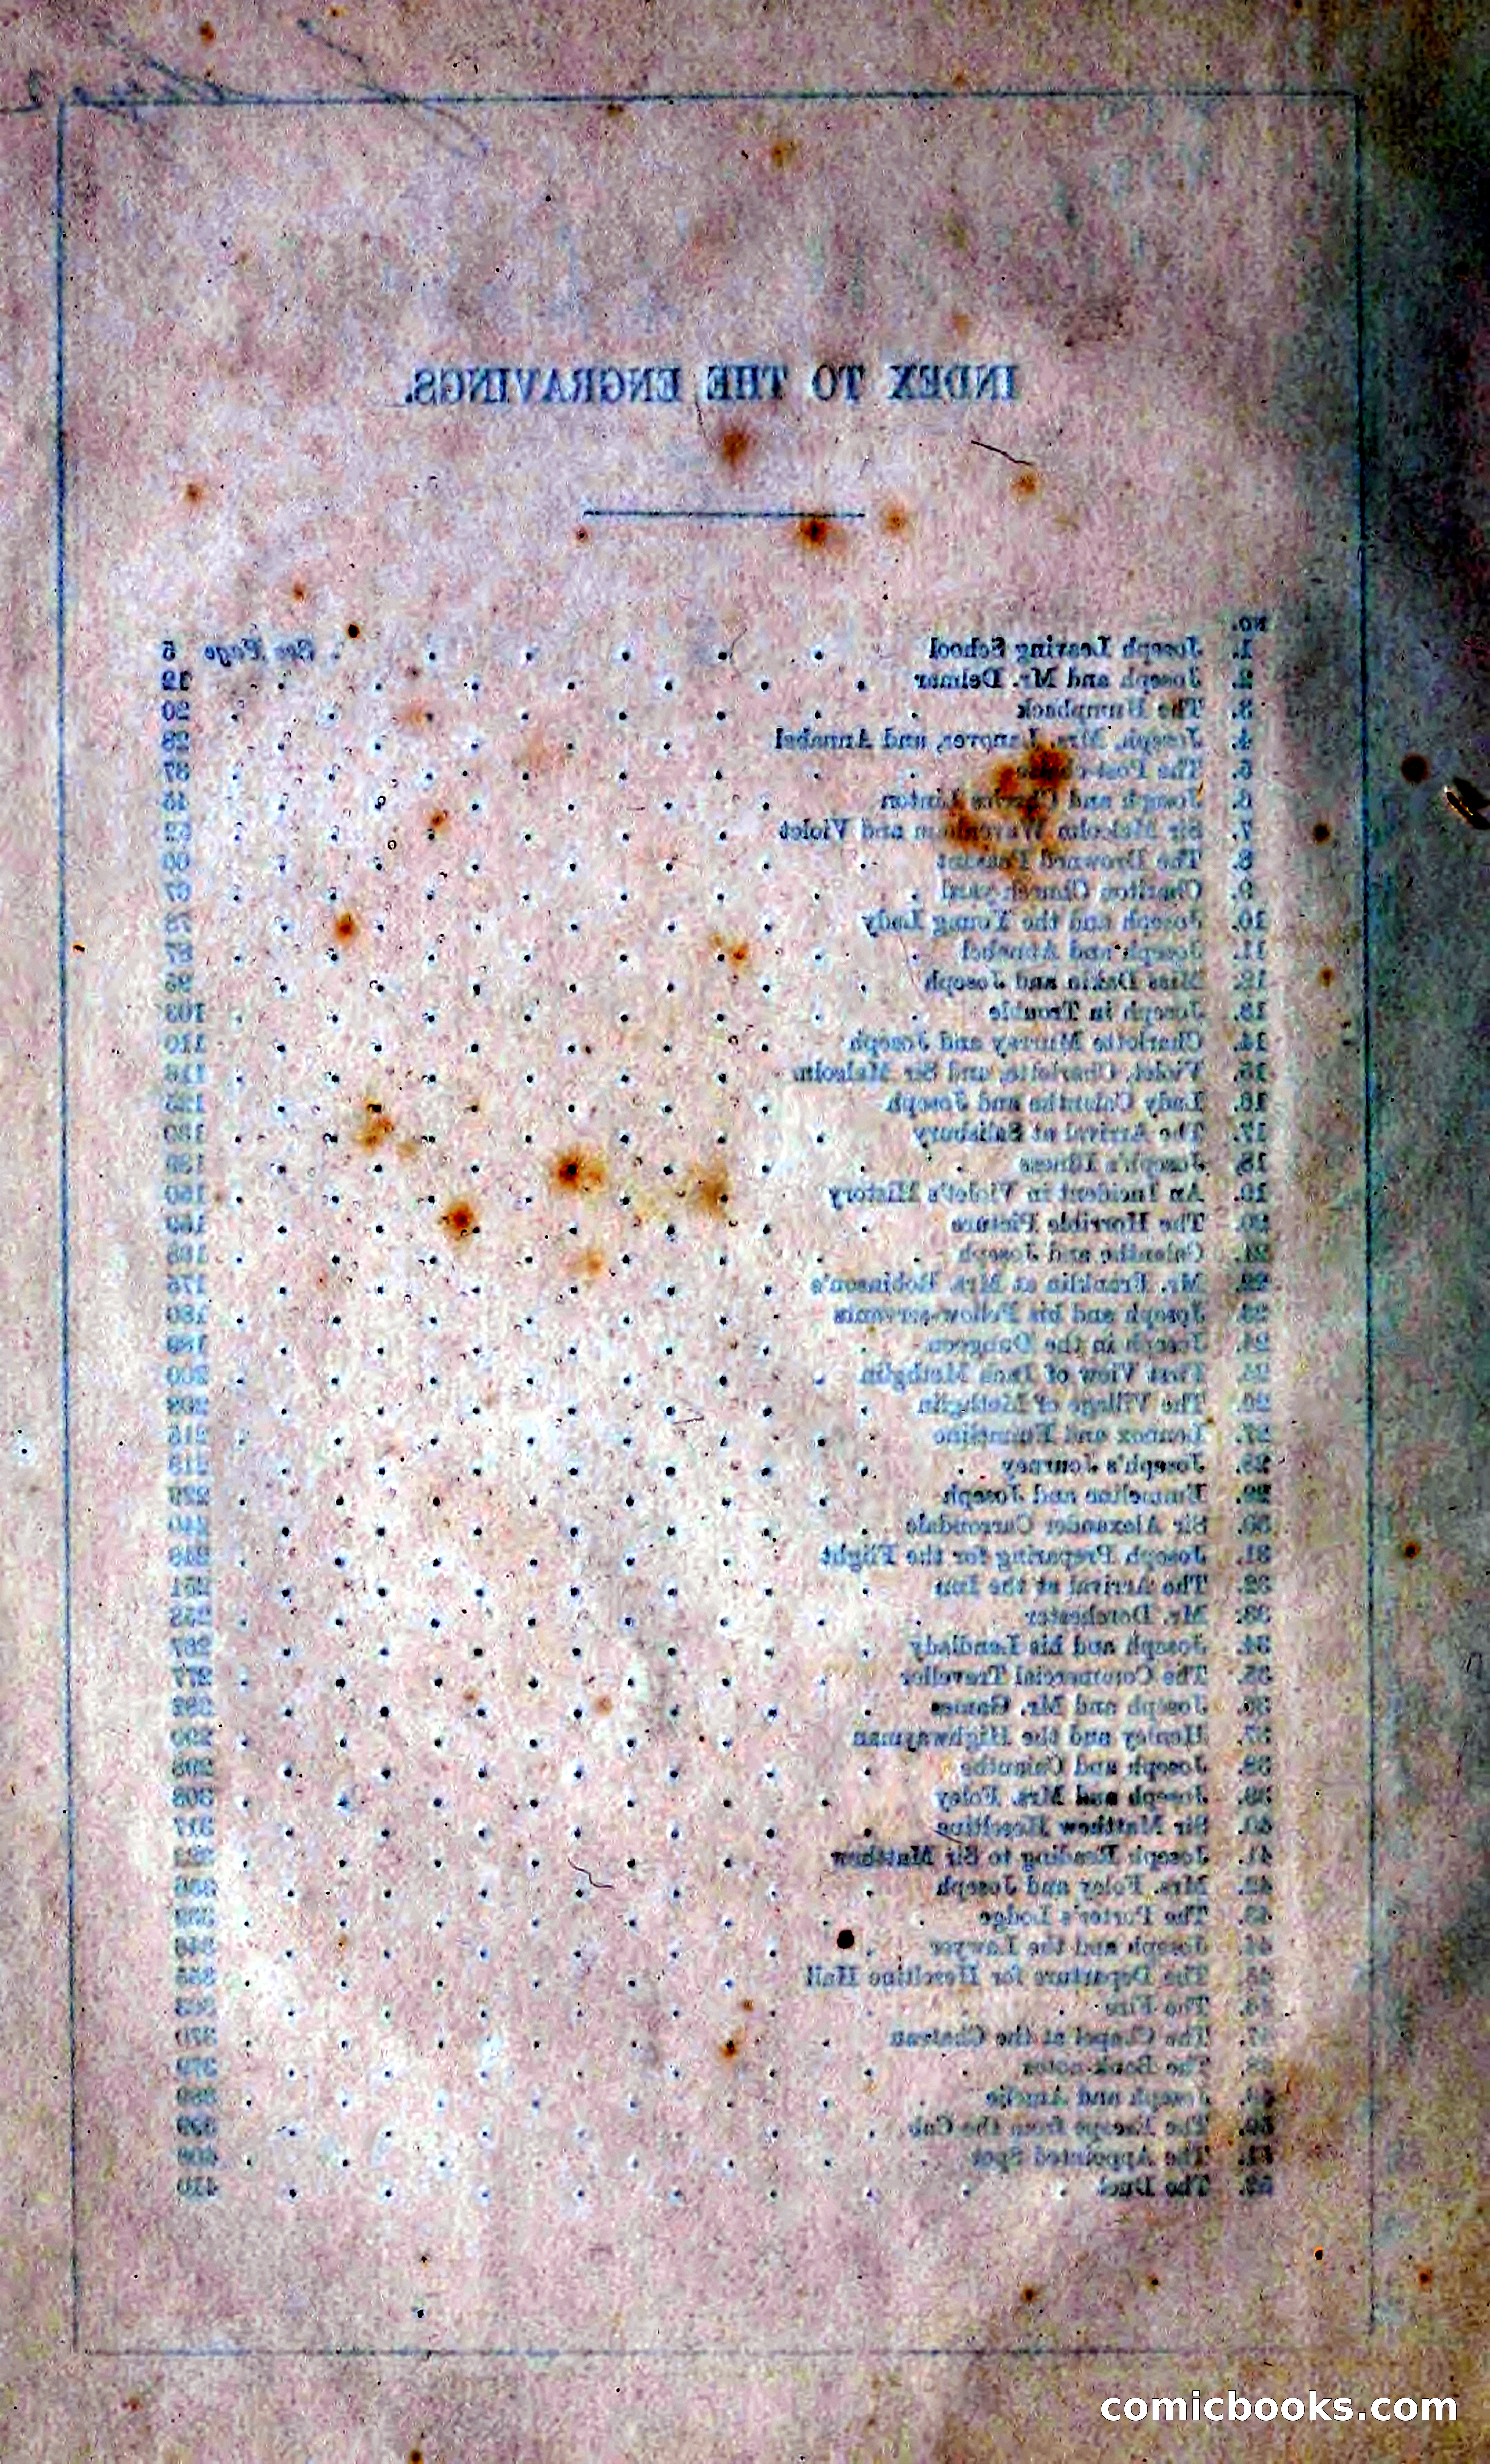 INDEX TO THE ENGRAVINGS.
NO.
1. Joseph Leaving School . . . . . . See Page 5
2. Joseph and Mr. Delmar . . . . . . . 12
3. The Humpback . . . . . . . . 20
4. Joseph, Mrs. Lanover, and Annabel . . . . . 28
5. The Post-chaise . . . . . . . . 37
6. Joseph and Charles Linton . . . . . . 45
7. Sir Malcolm Wavenham and Violet . . . . .
8. The Drowned Peasant . . . . . . . 60
9. Charlton Church-yard . . . . . . . 67
10. Joseph and the Young Lady . . . . . .
11. Joseph and Annabel . . . . . . . 87
12. Miss Dakin and Joseph . . . . . . . 95
13. Joseph in Trouble . . . . . . . 103
14. Charlotte Murray and Joseph . . . . . . 110
15. Violet, Charlotte, and Sir Malcolm . . . . .
16. Lady Calanthe and Joseph . . . . . . 125
17. The Arrival at Salisbury . . . . . . 130
18. Joseph's Illness . . . . . . . .
19. An Incident in Violet's History . . . . . . 150
20. The Horrible Picture . . . . . . .
21. Calanthe and Joseph . . . . . . .
22. Mr. Franklin at Mrs. Robinson's . . . . . 175
23. Joseph and his Fellow-servants . . . . . 180
24. Joseph in the Dungeon . . . . . . 189
25. First View of Inch Methglin . . . . . . 200
26. The Village of Methglin . . . . . . 208
27. Lennox and Emmeline . . . . . . 215
28. Joseph's Journey . . . . . . . 218
29. Emmeline and Joseph . . . . . . .
30. Sir Alexander Carrondale . . . . . . 240
31. Joseph Preparing for the Flight . . . . . 248
32. The Arrival at the Inn . . . . . . 251
33. Mr. Dorchester . . . . . . . 258
34. Joseph and his Landlady . . . . . . 267
35. The Commercial Traveller . . . . . . 277
36. Joseph and Mr. Games . . . . . . 282
37. Henley and the Highwayman . . . . . . 290
38. Joseph and Calanthe . . . . . . . 298
39. Joseph and Mrs. Foley . . . . . . 308
40. Sir Matthew Heseltine . . . . . . 317
41. Joseph Reading to Sir Matthew . . . . .
42. Mrs. Foley and Joseph . . . . . . 336
43. The Porter's Lodge . . . . . . .
44. Joseph and the Lawyer . . . . . . 346
45. The Departure for Heseltine Hall . . . . . 355
46. The Fire . . . . . . . . 363
47. The Chapel at the Chateau . . . . . . 370
48. The Bank-notes . . . . . . . 379
49. Joseph and Amelie . . . . . . . 389
50. The Escape from the Cab . . . . . . 399
51. The Appointed Spot . . . . . . . 406
52. The Duel . . . . . . . . 410
comicbooks.com